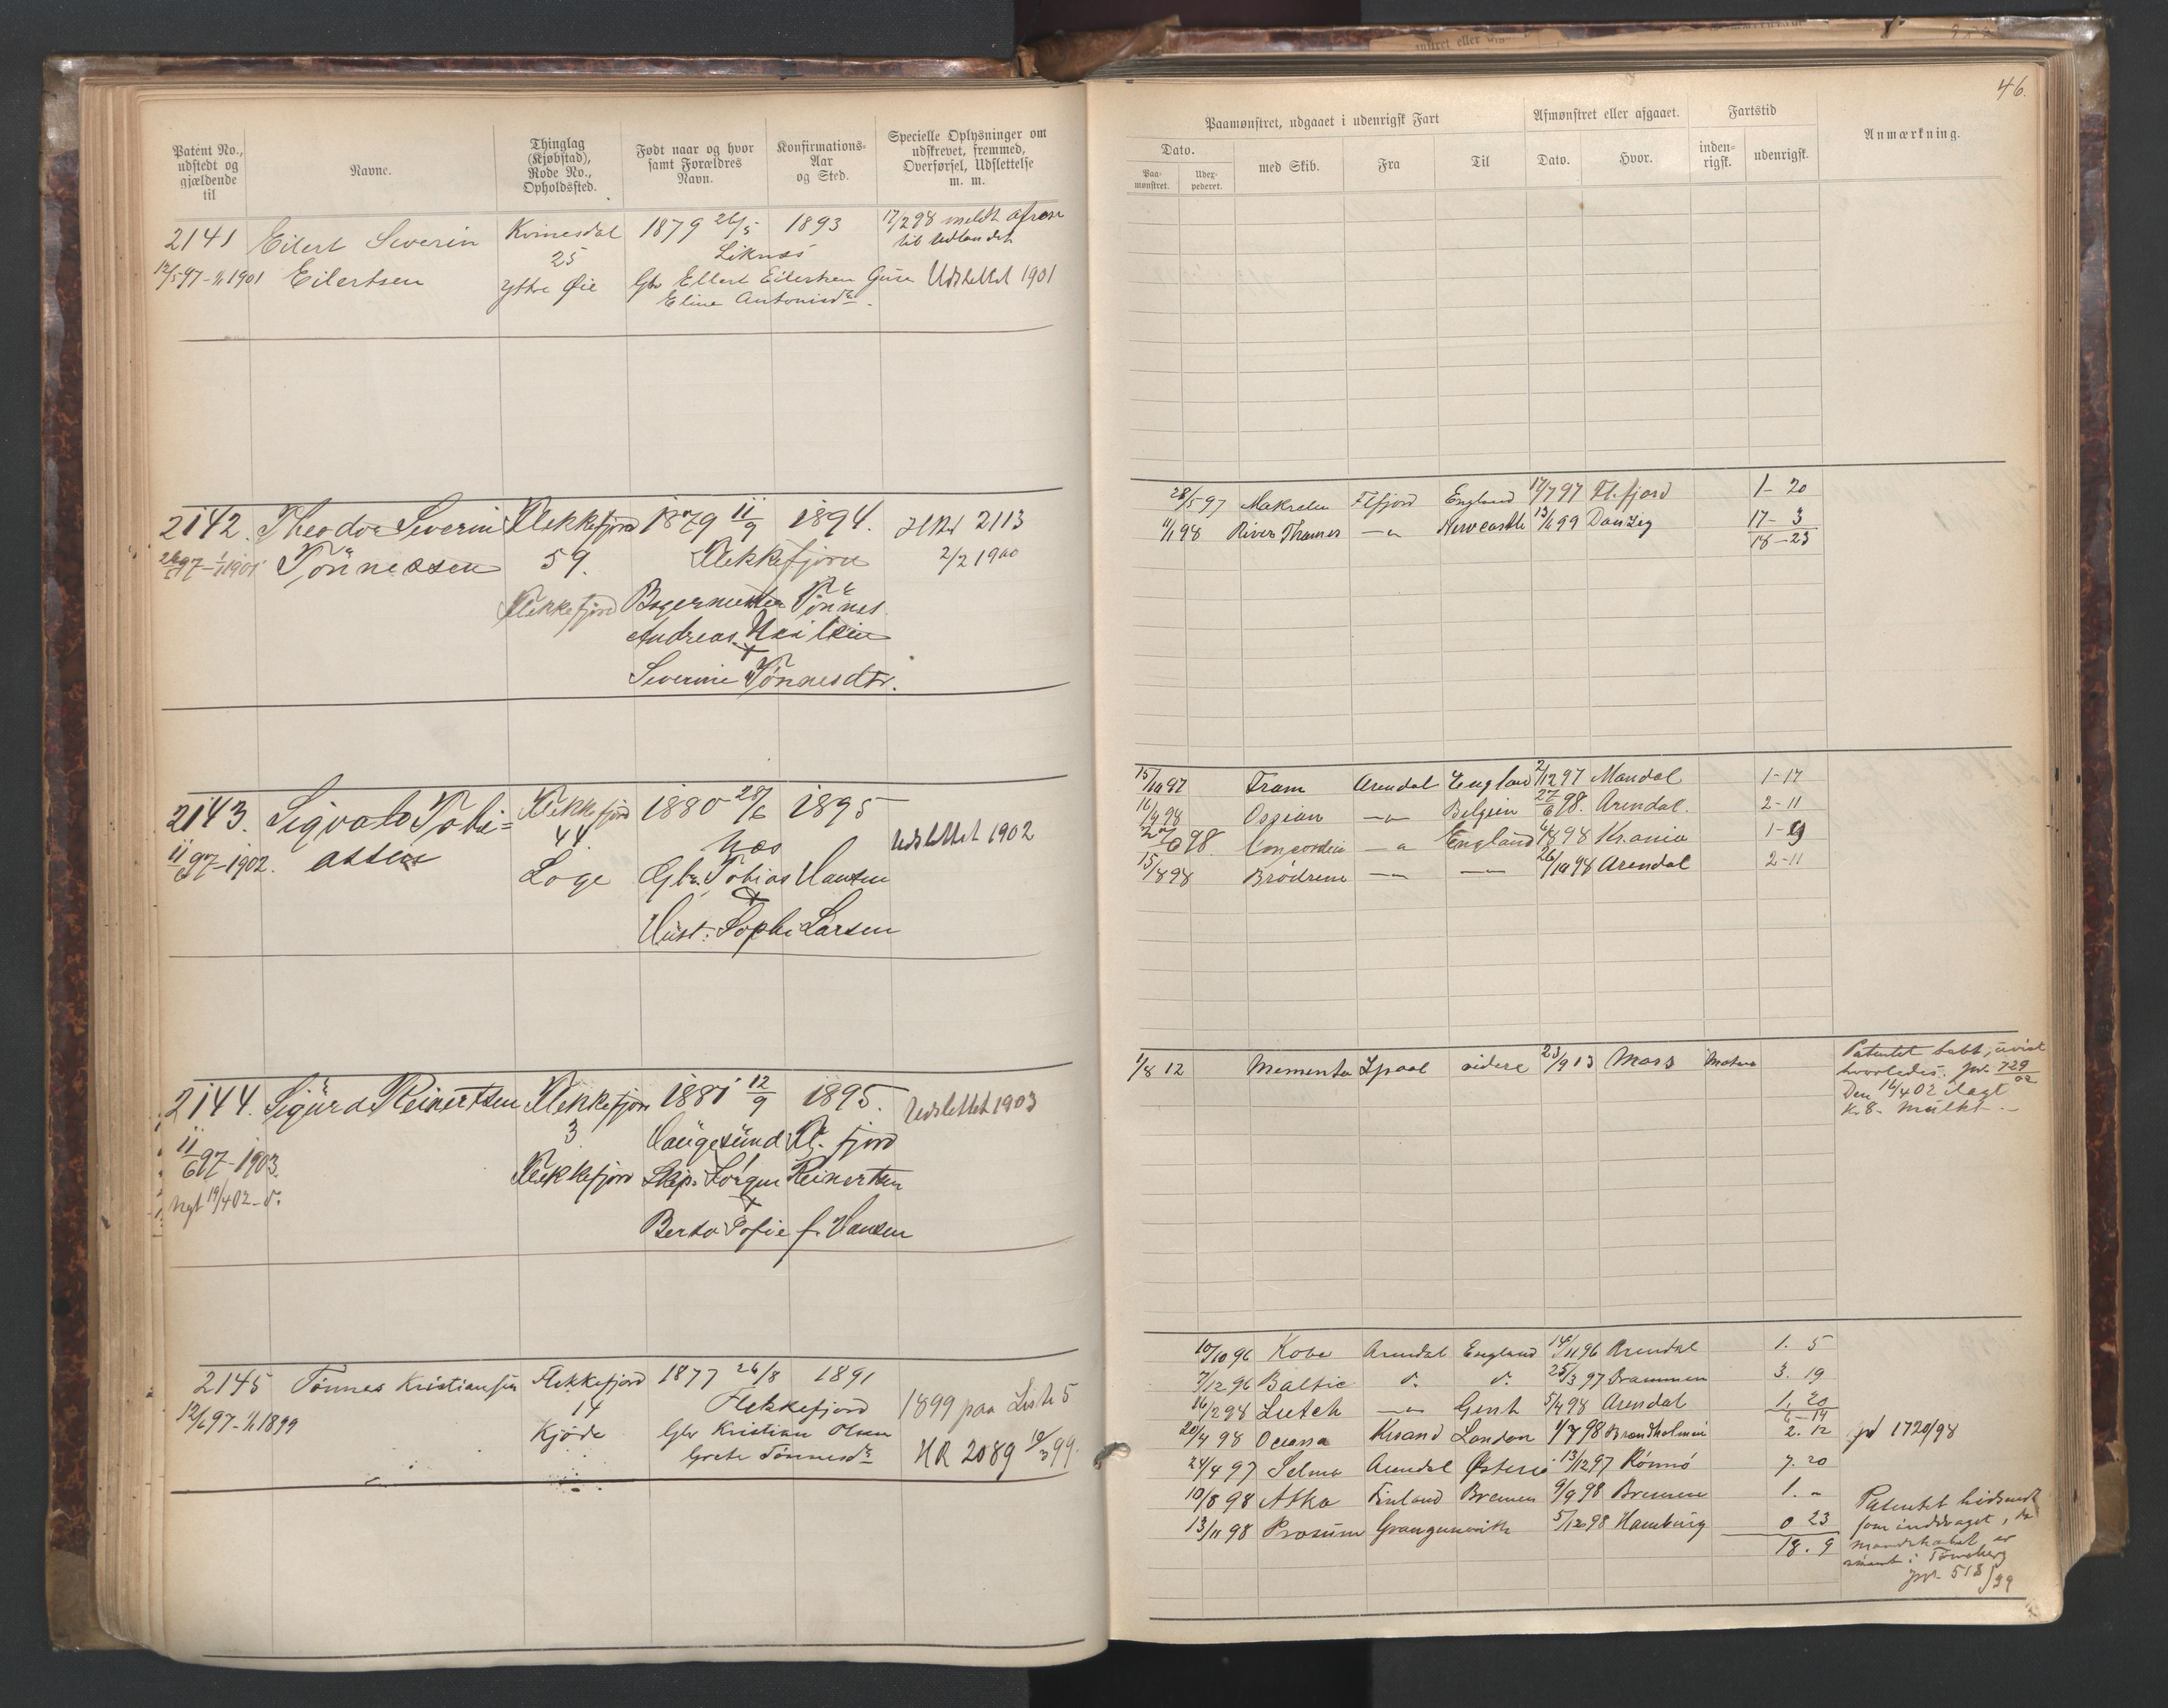 46.
Patent No., udstedt og gjældende til
Navne.
Thinglag (Kjøbstad), Rode No., Opholdssted.
Født naar og hvor samt Forældres Navn.
Konfirmations-Aar og Sted.
Specielle Oplysninger om udskrevet, fremmed, Overførsel, Udslettelse m. m.
Paamønstret, udgaaet i udenrigsk Fart
Afmønstret eller afgaaet.
Fartstid
Anmærkning.
Dato.
Paa-mønstret.
med Skib.
Fra
Til
Dato.
Hvor.
inden-rigsk.
udenrigsk.
2141 Eilert Severin Kvinesdal 1879 26/5 1893 17/2 98 meldt afreise
25 Liknes til Udlandet
12/5 97 - 1/1 1901 Eilertsen Yttre Øie Gbr Ellert Eilertsen Udslettet 1901
Eline Antonisdtr.
2142. Theodor Severin Flekkefjord 1879 11/9 1894. HRd 2113
97 - 1/1 1901 Tönnessen 59. Flekkefjord 2/2 1900
Flekkefjord Tönnes
Andreas
Severine Tönnesdtr.
28/5 97 Makrelen Flfjord England 17/7 97 Fl.fjord 1 - 20
11/1 98 River Thames -"- Newcastle 13/6 99 Danzig 17 - 3
18 - 23
2143. Sigvald Tobi= Flekkefjord 1880 28/6 1895
11/6 97 - 1902. assen 44. Næs Udslettet 1902
Loge Gbr. Tobias Hansen
Hust. Sophi Larsen
15/10 97 Fram Arendal England 2/12 97 Mandal 1 - 17
16/4 98 Ossian -"- Belgien 27/6 98. Arendal. 2 - 11
98. Concordia -"- England 98 Kr.ania 1 - 9
15/8 98 Brödrene -"- -"- 26/10 98 Arendal 2 - 11
2144. Sigurd Reinertsen Flekkefjord 1881 12/9 1895. Udslettet 1903
11/6 97 - 1903. 3 Haugesund Fl. fjord
Flekkefjord Skip. Jörgen Reinertsen
Nyt 19/4 02 - d.
Berta Sofie f. Hansen
1/8 12 Memento Lpool videre 23/9 13 Moss
Patentet tabt, uvist
hvorledes. jnr. 729/02
Den 16/4 02 ilagt
K. 8. Mulkt.
2145 Tönnes Kristiansen Flekkefjord 1877 26/8 1891
14 Flekkefjord 1899 paa Liste 5
12/6 97 - 1/1 1899 Kjöde Gbr Kristian Olsen
Grete Tönnesdtr HR 2089 99.
10/10 96 Kobe Arendal England 14/11 96 Arendal 1. 5
7/12 96 Baltic d. d. 25/3 97 Drammen 3. 19
16/2 98 Lutch -"- Gent 5/4 98 Arendal 1. 20
6 - 14
20/4 98 Oceana Krsand London 1/7 98 2. 12 jr 1720/98
24/4 97 Selma Arendal 13/12 97 Rönnö 7. 20
10/8 98 Atka Finland Bremen 9/9 98 Bremen 1. "
13/11 98 Prosum 5/12 98 Hamburg 0 23
18. 9
Patentet hidsendt
som inddraget, da
mandskabet er
i Tönsberg
jnr. 518/99